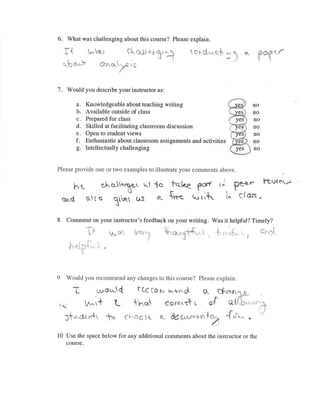 6. What was challenging about this course? Please explain.
It was challenging conducting a paper
about analysis
7. Would you describe your instructor as:
a. Knowledgeable about teaching writing yes no
b. Available outside of class yes no
c. Prepared for class yes no
d. Skilled at facilitating classroom discussion yes no
e. Open to student views yes no
f. Enthusiastic about classroom assignments and activities yes no
g. Intellectually challenging yes no
Please provide one or two examples to illustrate your comments above.
he challenges us to take part in peer review
and also gives us a free write in class.
8 Comment on your instructor's feedback on your writing. Was it helpful? Timely?
It was very thoughtful, and
helpful.
9 Would you recommend any changes to this course? Please explain.
I would reccommend a change
in unit 2 that consists of allowing
students to choose a documentary film.
10 Use the space below for any additional comments about the instructor or the
course.